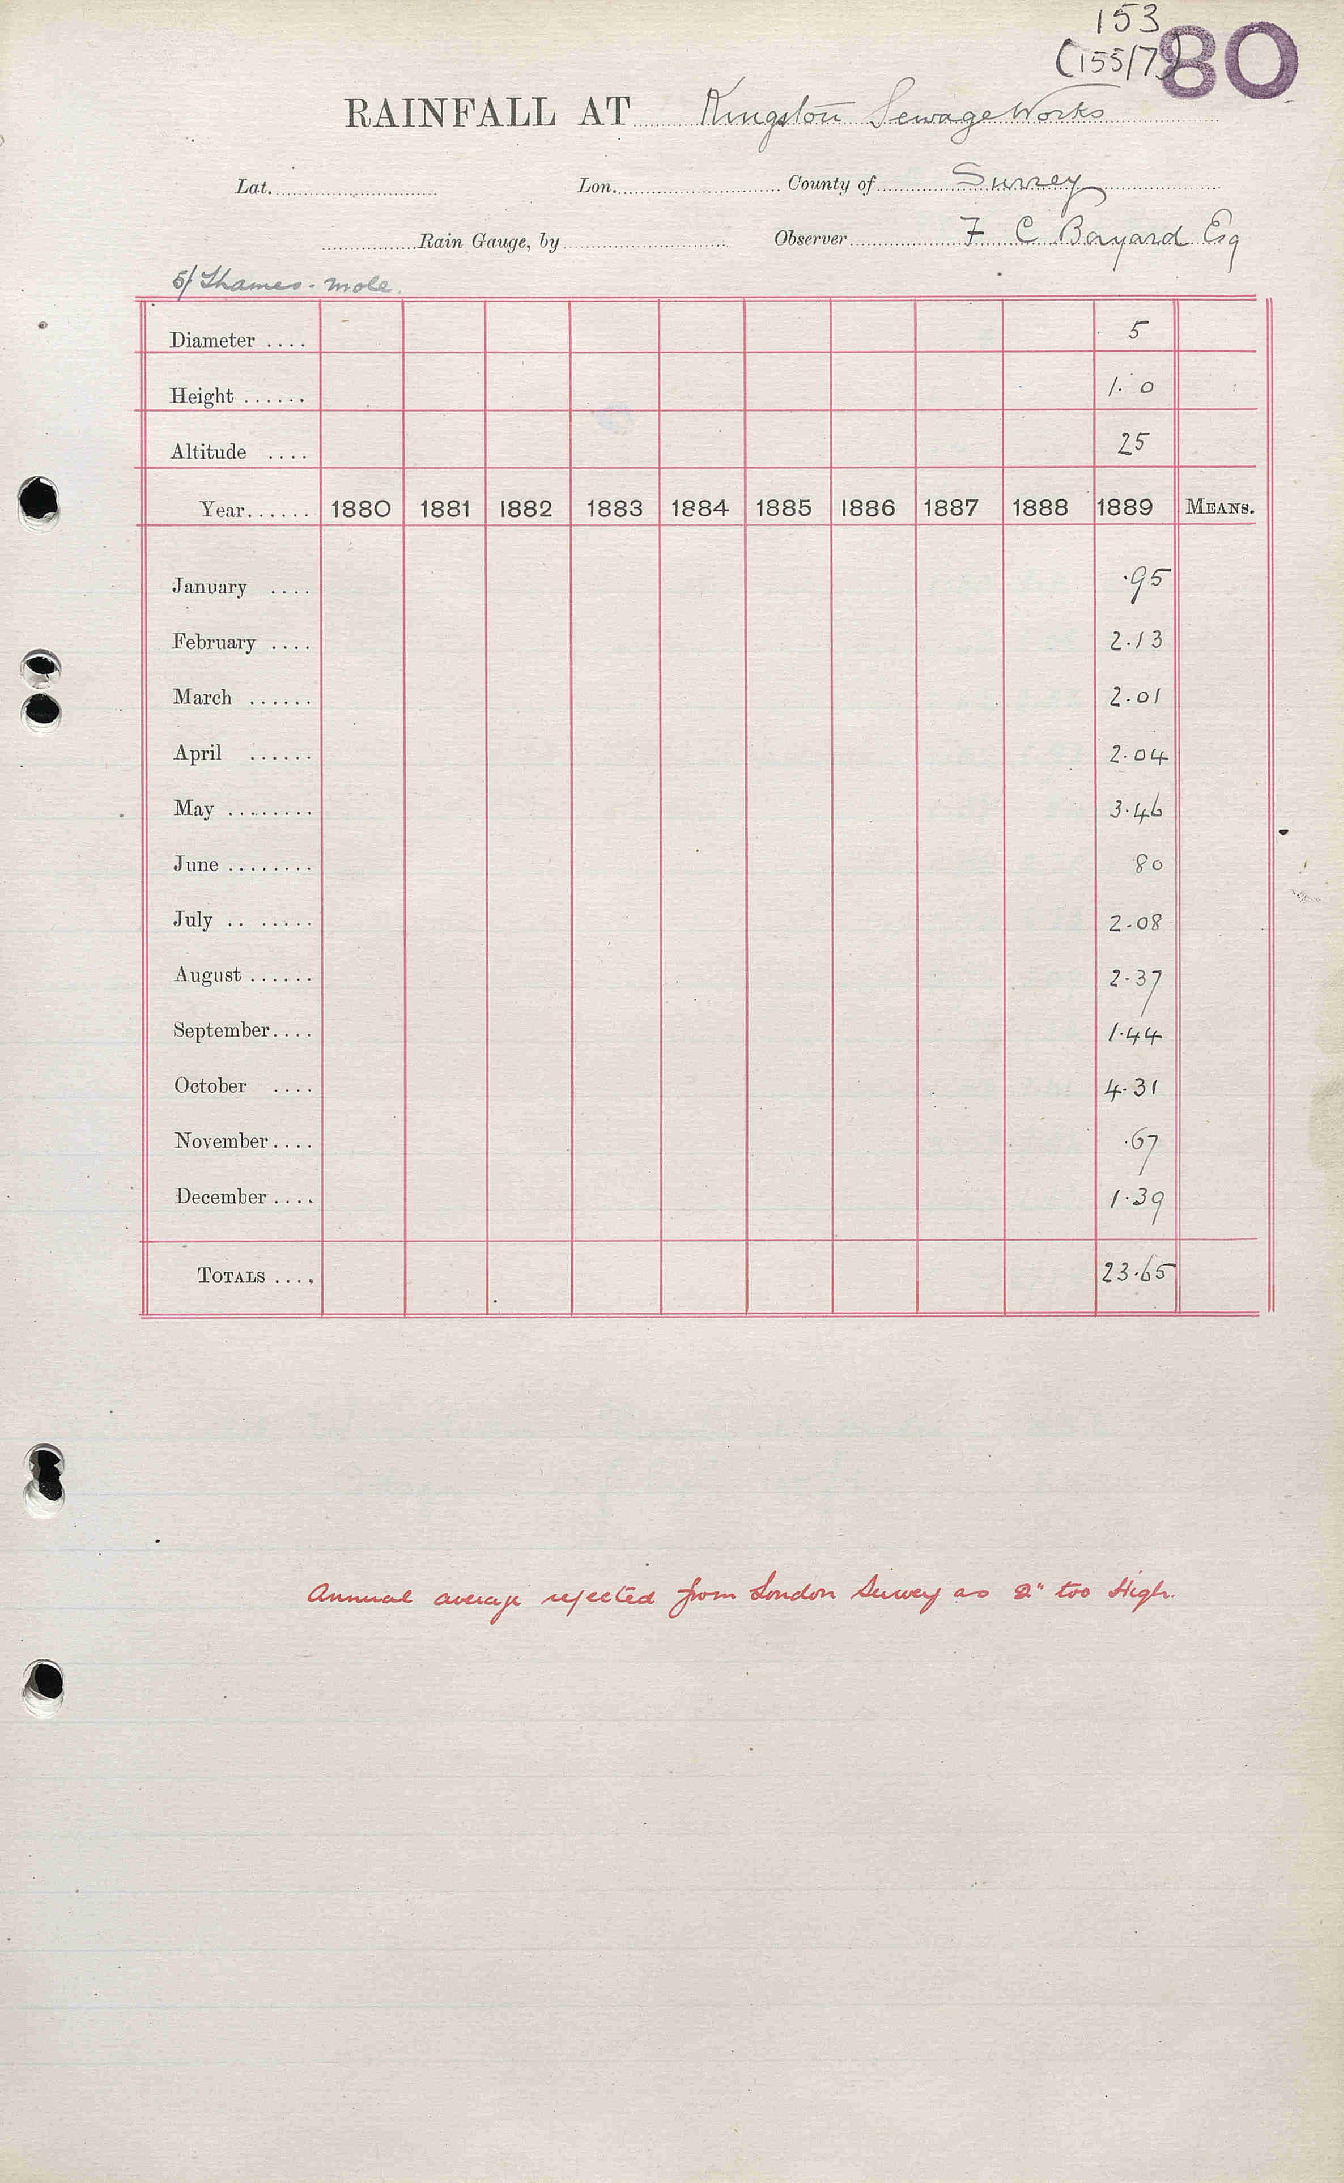 153
(155/7) 80
RAINFALL AT Kingston Sewage Works
Lat. Lon. County of Surrey
Rain Gauge, by Observer F C Bayard Esq
5/ Thames - Mole.
Diameter .... 5
Height ...... 1. 0
Altitude .... 25
Year...... 1880 1881 1882 1883 1884 1885 1886 1887 1888 1889 MEANS.
January .... .95
February .... 2.13
March ...... 2.01
April ...... 2.04
May ........ 3.46
June ........ 80
July .. ...... 2.08
August ...... 2.37
September.... 1.44
October .... 4.31
November.... .67
December.... 1.39
TOTALS .... 23.65
Annual average rejected from London Survey as 2" too High.